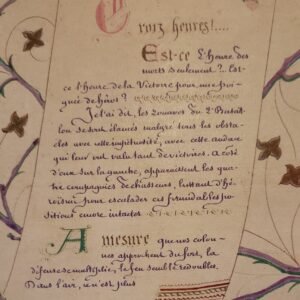 Trois heures!....
Est-ce l'heure des
morts seulement? Est-
ce l'heure de la Victoire pour une poi-
gnée de héros?
Je t'ai dit, les Zouaves du 2e Batail-
lon se sont élancés malgré tous les obsta-
cles avec cette impétuosité, avec cette audace
qui leur ont valu tant de victoires. A côté
d'eux sur la gauche, apparaissent les qua-
tre compagnies de chasseurs, luttant d'hé-
roïsme pour escalader ces formidables po-
sitions encore intactes
A mesure que nos colon-
nes approchent du fort, la
défense se multiplie, le feu semble redoubler.
Dans l'air, ce n'est plus